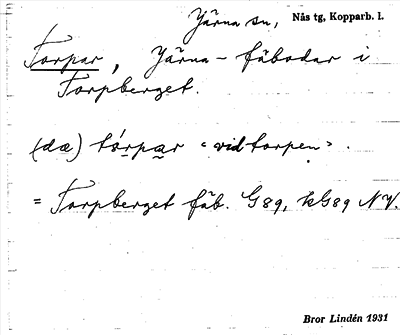 Järna sn, Nås tg, Kopparb. l.
Torpar, Järna-fäbodar i
Torpberget.
(dæ) tórpar «vid torpen».
= Torpberget fäb. G89, kG89 NV.
Bror Lindén 1931